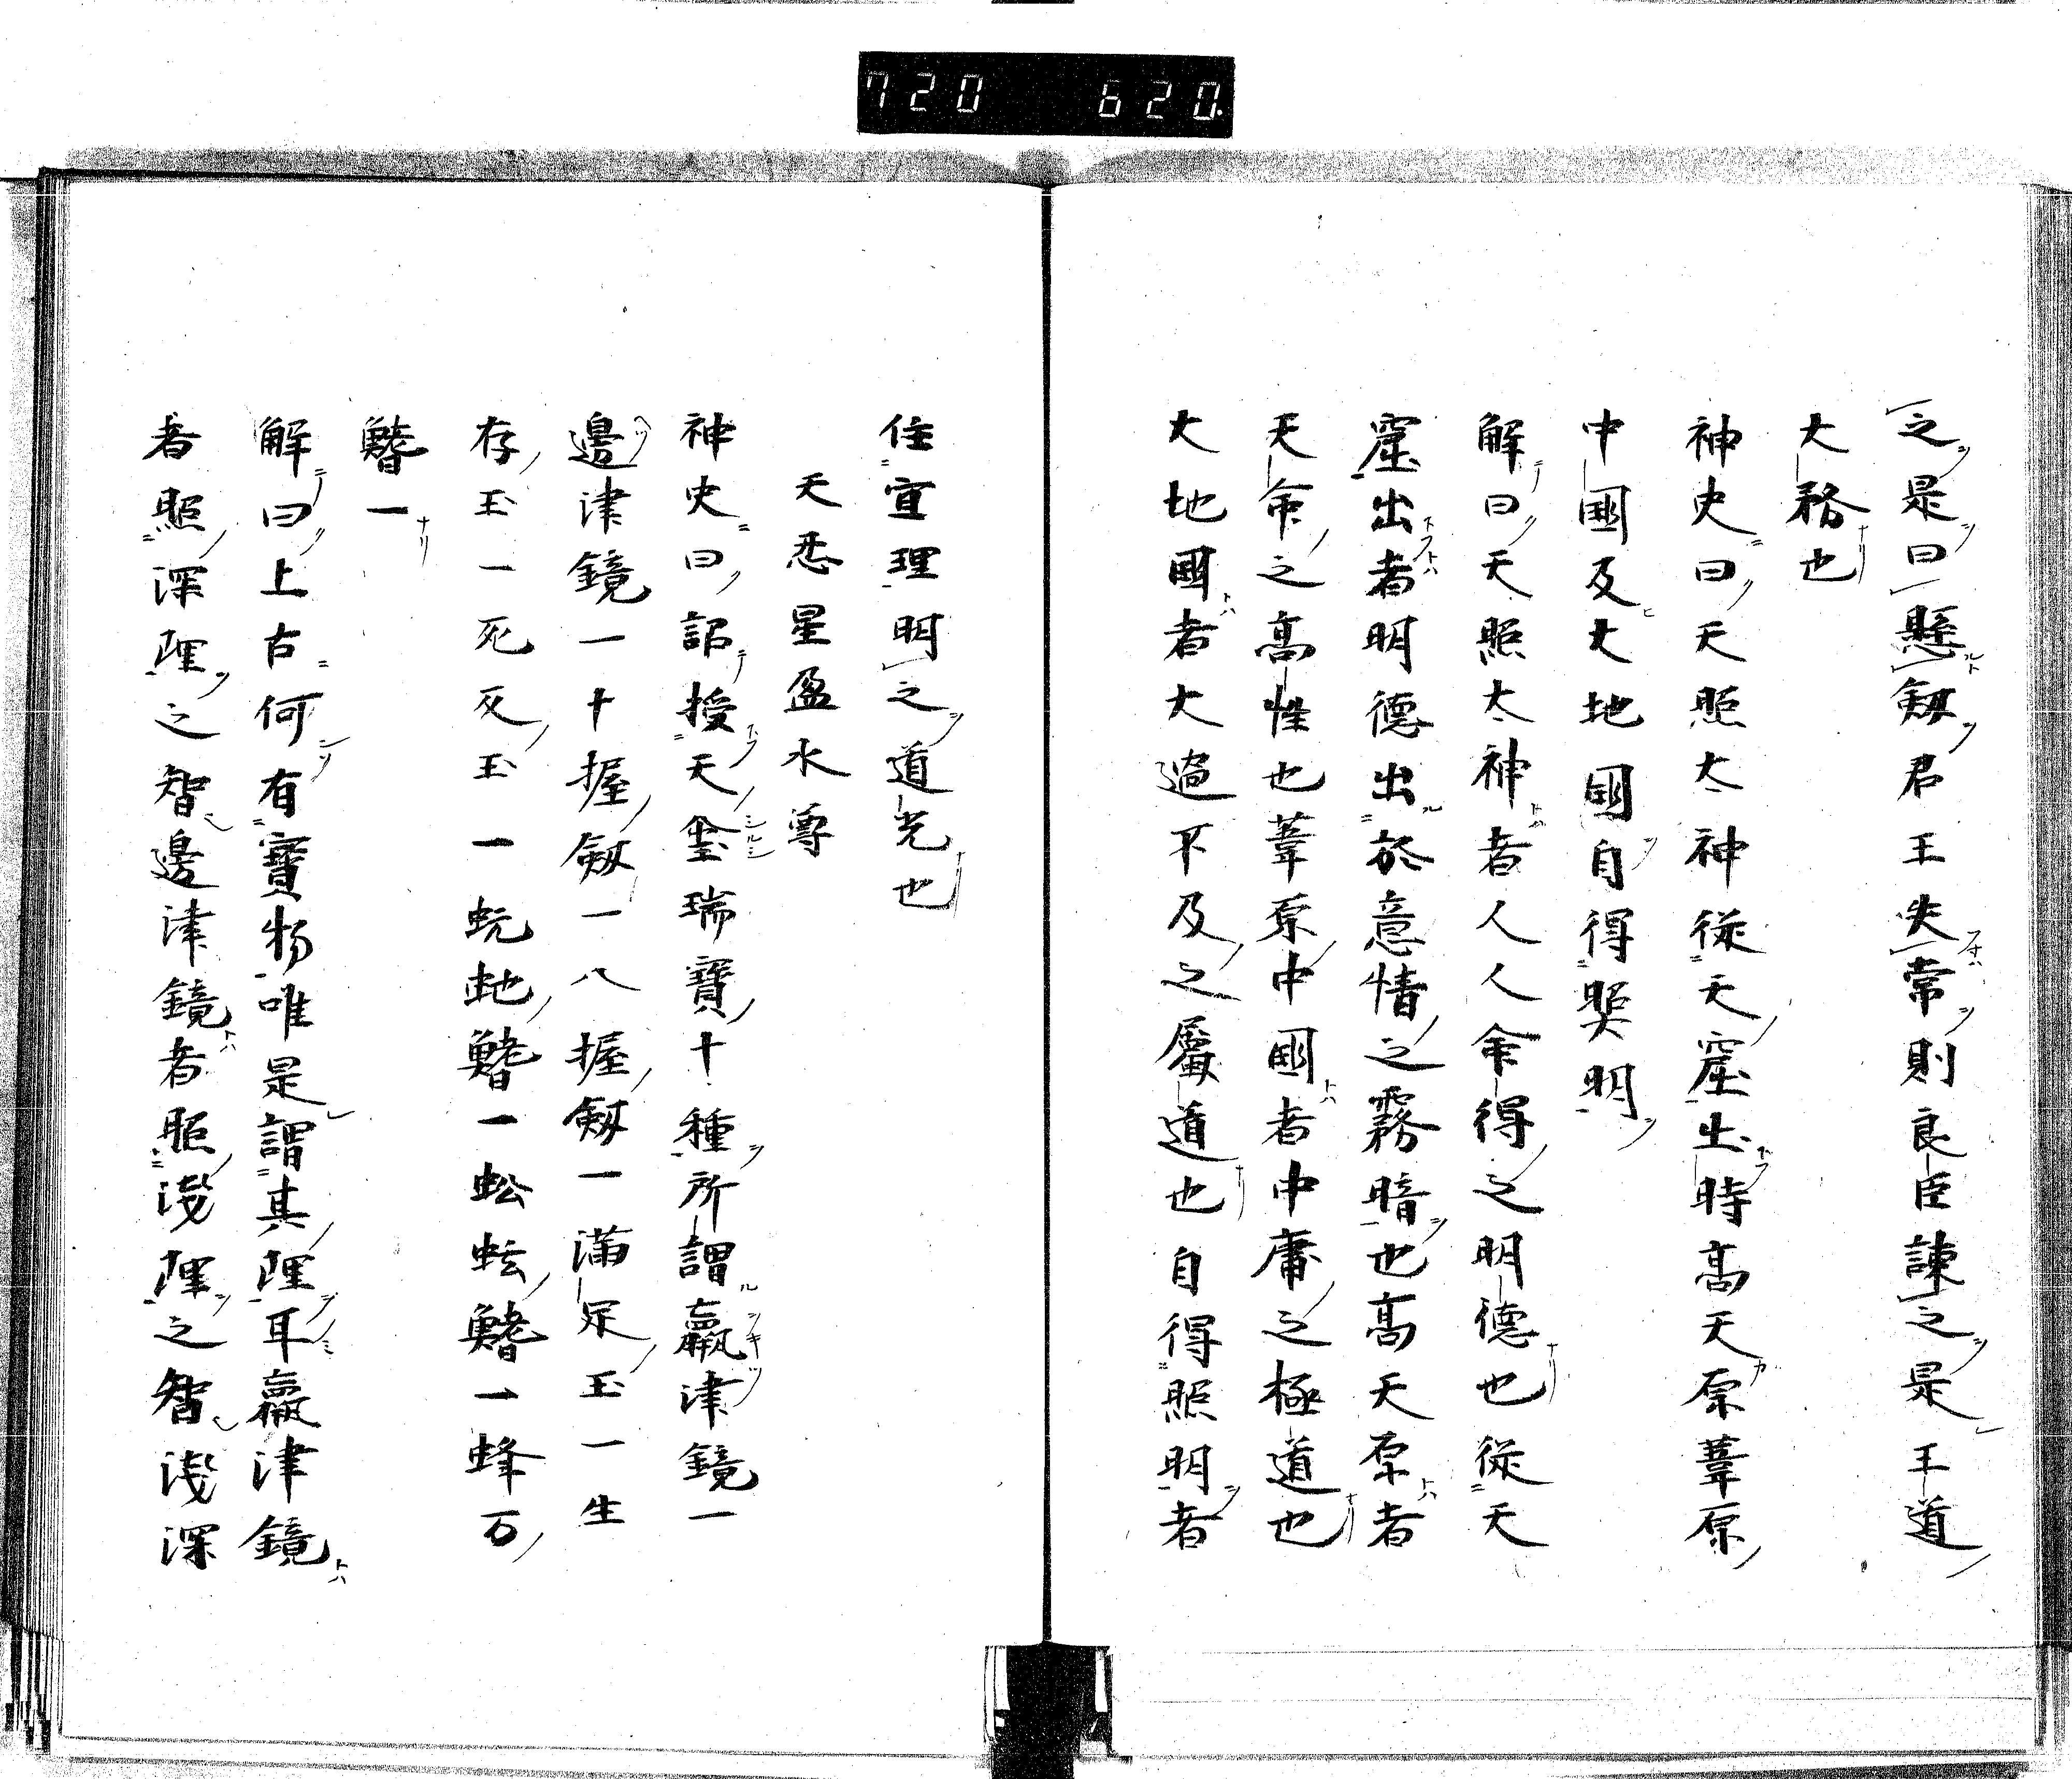 720 620.
之是曰懸劔君王失常則良臣諫之是王道
大務也
神史曰天照太神從天窟出時高天原葦原
中國及大地國自得照明
解曰天照太神者人人命得之明德也從天
窟出者明德出於意情之霧暗也高天原者
天命之高性也葦原中國者中庸之極道也
大地國者大過不及之屬道也自得照明者
住宜理明之道光也
天悉星盈水尊
神史曰詔授天璽瑞寶十種所謂嬴津鏡一
邊津鏡一十握劔一八握劔一滿足玉一生
存玉一死反玉一蚖虵鰭一蚣蚿鰭一蜂万
鰭一
解曰上古何有寶物唯是謂其理耳嬴津鏡
者照深理之智邊津鏡者照浅理之智浅深